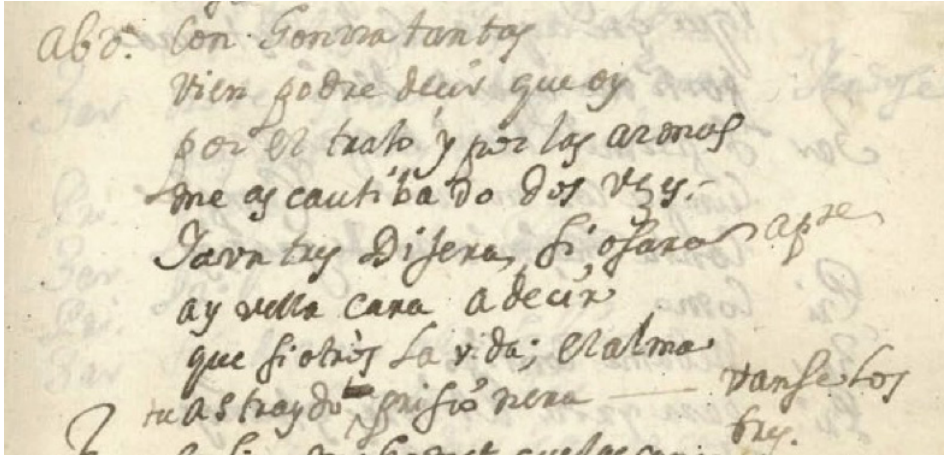 abd. Con Honrra tantas
vien podre decir que oy
por el trato y por las armas
me as cautibado dos vzs.
Iavn tres Dijera, si osara apte
ay vella cara a decir
que si otros la vida; el alma
tu as traydo prisionera vanse los
tres.